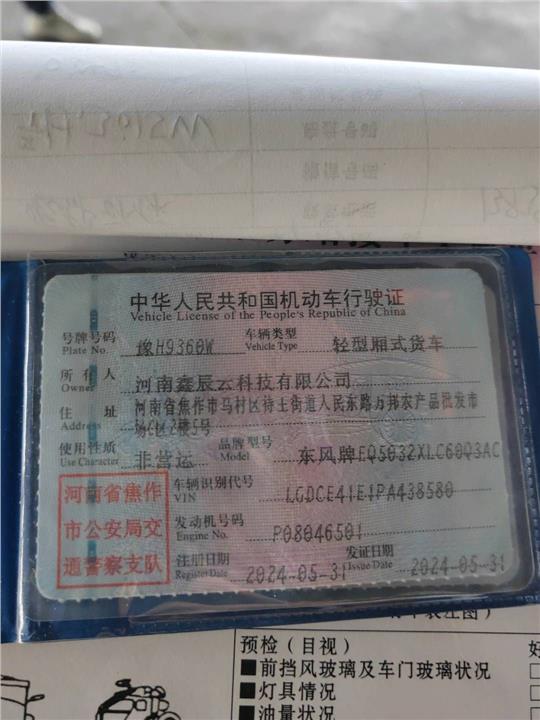 中华人民共和国机动车行驶证
Vehicle License of the People's Republic of China
号牌号码 豫H9360W 车辆类型 轻型厢式货车
Plate No. Vehicle Type
所有人 河南鑫辰云科技有限公司
Owner
住址 河南省焦作市马村区待王街道人民东路万邦农产品批发市
Address 场C区2楼5号
使用性质 非营运 品牌型号 东风牌EQ5032XLC60Q3AC
Use Character Model
河南省焦作
市公安局交
通警察支队
车辆识别代号 LGDCE41E1PA438580
VIN
发动机号码 P08046501
Engine No.
注册日期 2024-05-31 发证日期 2024-05-31
Register Date Issue Date
预检（目视）
■前挡风玻璃及车门玻璃状况
■灯具情况
■油量状况